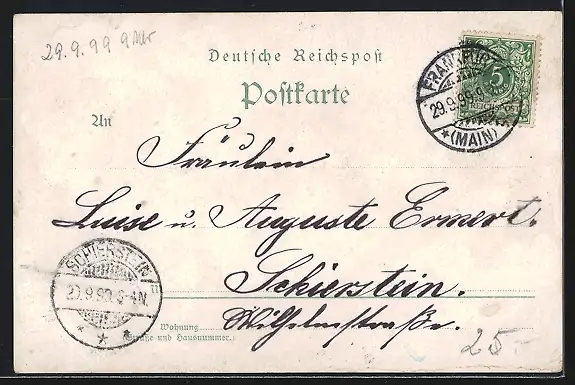 29.9.99 9
Deutsche Reichspost
Postkarte
An
FRANKFURT
29.9.99.9
*(MAIN)*
5
Reichspost
Fräulein
Luise u. Auguste Ermert.
Schierstein.
Wilhelmstraße.
SCHIERSTEIN
29.9.99.
* * *
Wohnung
(Straße und Hausnummer.)
25.-